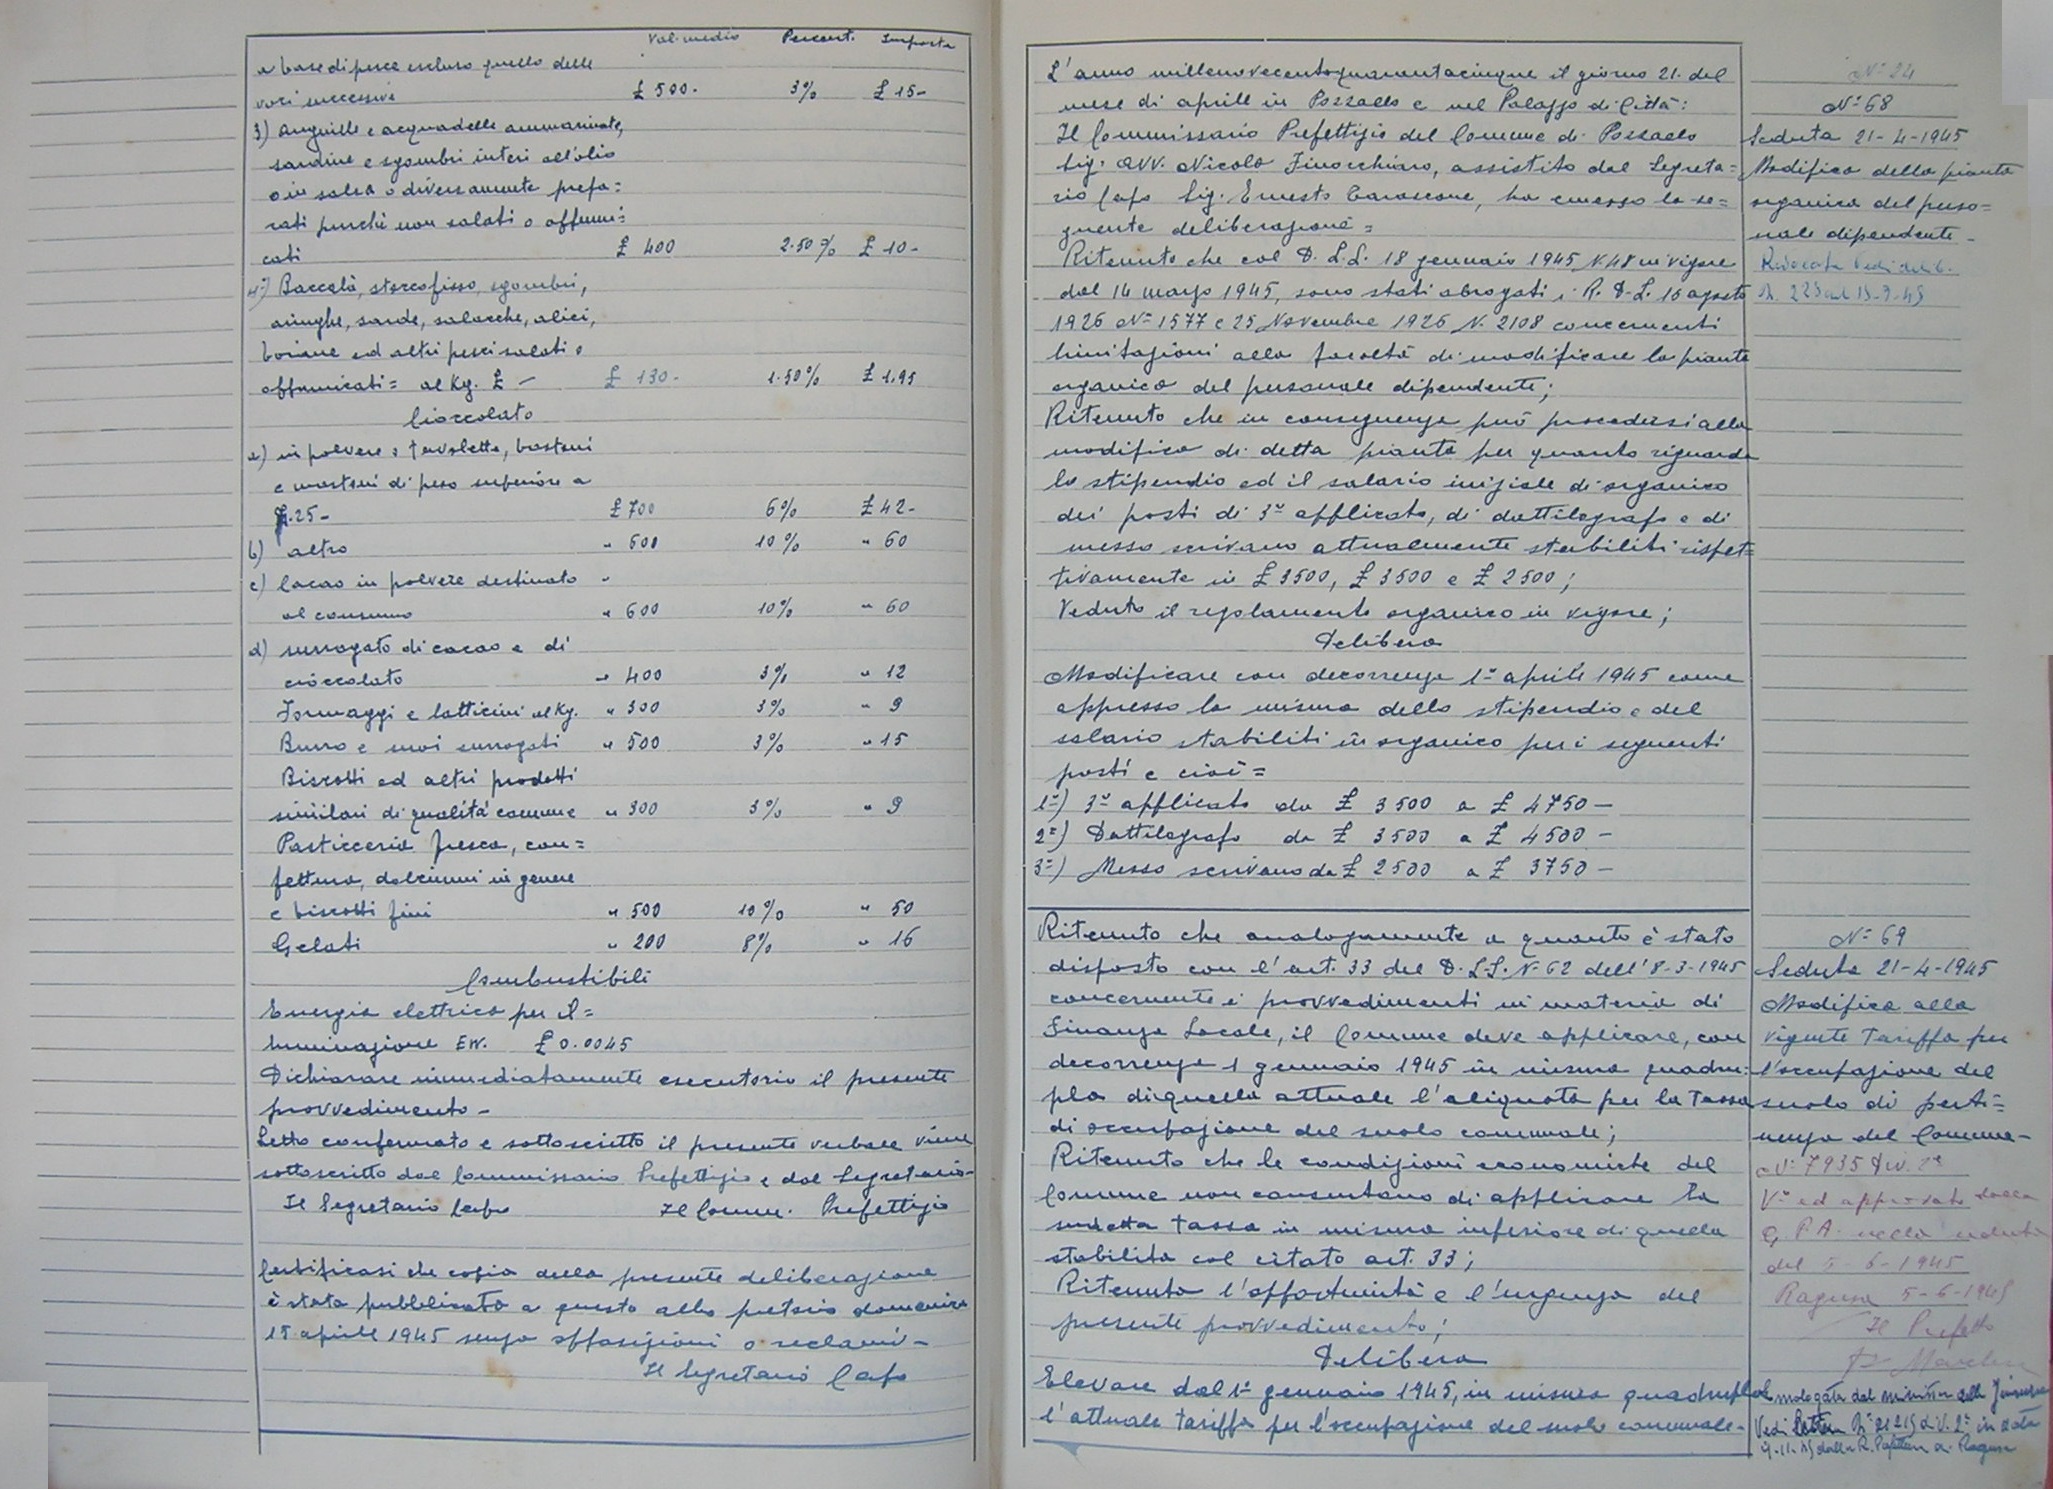 Val. medio Percent. Importo
a base di pesce escluso quello delle
voci successive £ 500.- 3% £ 15-
3) Anguille e acquadelle ammarinate,
sardine e sgombri interi all'olio
o in salsa o diversamente prepa=
rati purchè non salati o affumi=
cati £ 400 2.50% £ 10-
4°) Baccalà, stoccofisso, sgombri,
aringhe, sarde, salacche, alici,
boiane ed altri pesci salati o
affumicati= al Kg. £ - £ 130- 1.50% £ 1,95
Cioccolato
a) in polvere o tavolette, bastoni
e mostrini di peso superiore a
g. 25- £ 700 6% £ 42-
b) altro " 600 10% " 60
c) Cacao in polvere destinato "
al consumo " 600 10% " 60
d) surrogato di cacao e di
cioccolato " 400 3% " 12
Formaggi e latticini al Kg. " 300 3% " 9
Burro e suoi surrogati " 500 3% " 15
Biscotti ed altri prodotti
similari di qualità comune " 300 3% " 9
Pasticceria fresca, con=
fettura, dolciumi in genere
e biscotti fini " 500 10% " 50
Gelati " 200 8% " 16
Combustibili
Energia elettrica per il=
luminazione EW. £ 0.0045
Dichiarare immediatamente esecutorio il presente
provvedimento-
Letto confermato e sottoscritto il presente verbale viene
sottoscritto dal Commissario Prefettizio e dal Segretario-
Il Segretario Capo Il Comm. Prefettizio
Certificasi che copia della presente deliberazione
è stata pubblicata a questo albo pretorio domenica
15 aprile 1945 senza opposizioni o reclami-
Il Segretario Capo
L'anno millenovecentoquarantacinque il giorno 21. del
mese di aprile in Pozzallo e nel Palazzo di Città:
Il Commissario Prefettizio del Comune di Pozzallo
Sig. Avv. Nicolò Finocchiaro, assistito dal Segreta=
rio Capo Sig. Ernesto Carascone, ha emesso la se=
guente deliberazione=
Ritenuto che col D. L.L. 18 gennaio 1945 N.48 in vigore
dal 14 marzo 1945, sono stati abrogati i R. D-L. 16 agosto
1926 N° 1577 e 25 Novembre 1926 N. 2108 concernenti
limitazioni alla facoltà di modificare la pianta
organica del personale dipendente;
Ritenuto che in conseguenza può procedersi alla
modifica di detta pianta per quanto riguarda
lo stipendio ed il salario iniziale di organico
dei posti di 3° applicato, di dattilografo e di
messo scrivano attualmente stabiliti rispet=
tivamente in £ 3500, £ 3500 e £ 2500;
Veduto il regolamento organico in vigore;
Delibera
Modificare con decorrenza 1° aprile 1945 come
appresso la misura dello stipendio e del
salario stabiliti in organico per i seguenti
posti e cioè=
1°) 3° applicato da £ 3500 a £ 4750-
2°) Dattilografo da £ 3500 a £ 4500-
3°) Messo scrivano da £ 2500 a £ 3750-
Ritenuto che analogamente a quanto è stato
disposto con l'art. 33 del D.L.L. N° 62 dell'8-3-1945
concernente i provvedimenti in materia di
Finanza Locale, il Comune deve applicare, con
decorrenza 1 gennaio 1945 in misura quadru=
pla di quella attuale l'aliquota per la tassa
di occupazione del suolo comunale;
Ritenuto che le condizioni economiche del
Comune non consentano di applicare la
sudetta tassa in misura inferiore di quella
stabilita col citato art. 33;
Ritenuto l'opportunità e l'urgenza del
presente provvedimento;
Delibera
Elevare dal 1° gennaio 1945, in misura quadrupla
l'attuale tariffa per l'occupazione del suolo comunale-
N° 24
N° 68
Seduta 21-4-1945
Modifica della pianta
organica del perso=
nale dipendente-
Revocata Vedi delib.
N. 223 del 15-9-45
N° 69
Seduta 21-4-1945
Modifica alla
vigente tariffa per
l'occupazione del
suolo di perti=
nenza del Comune-
N° 7935 Div. 2ª
V° ed approvato dalla
G.P.A. nella seduta
del 5-6-1945
Ragusa 5-6-1945
Il Prefetto
Omologata dal ministero delle Finanze
Vedi lettera N° 21215 div. 2ª in data
9.11.45 della R. Prefettura di Ragusa